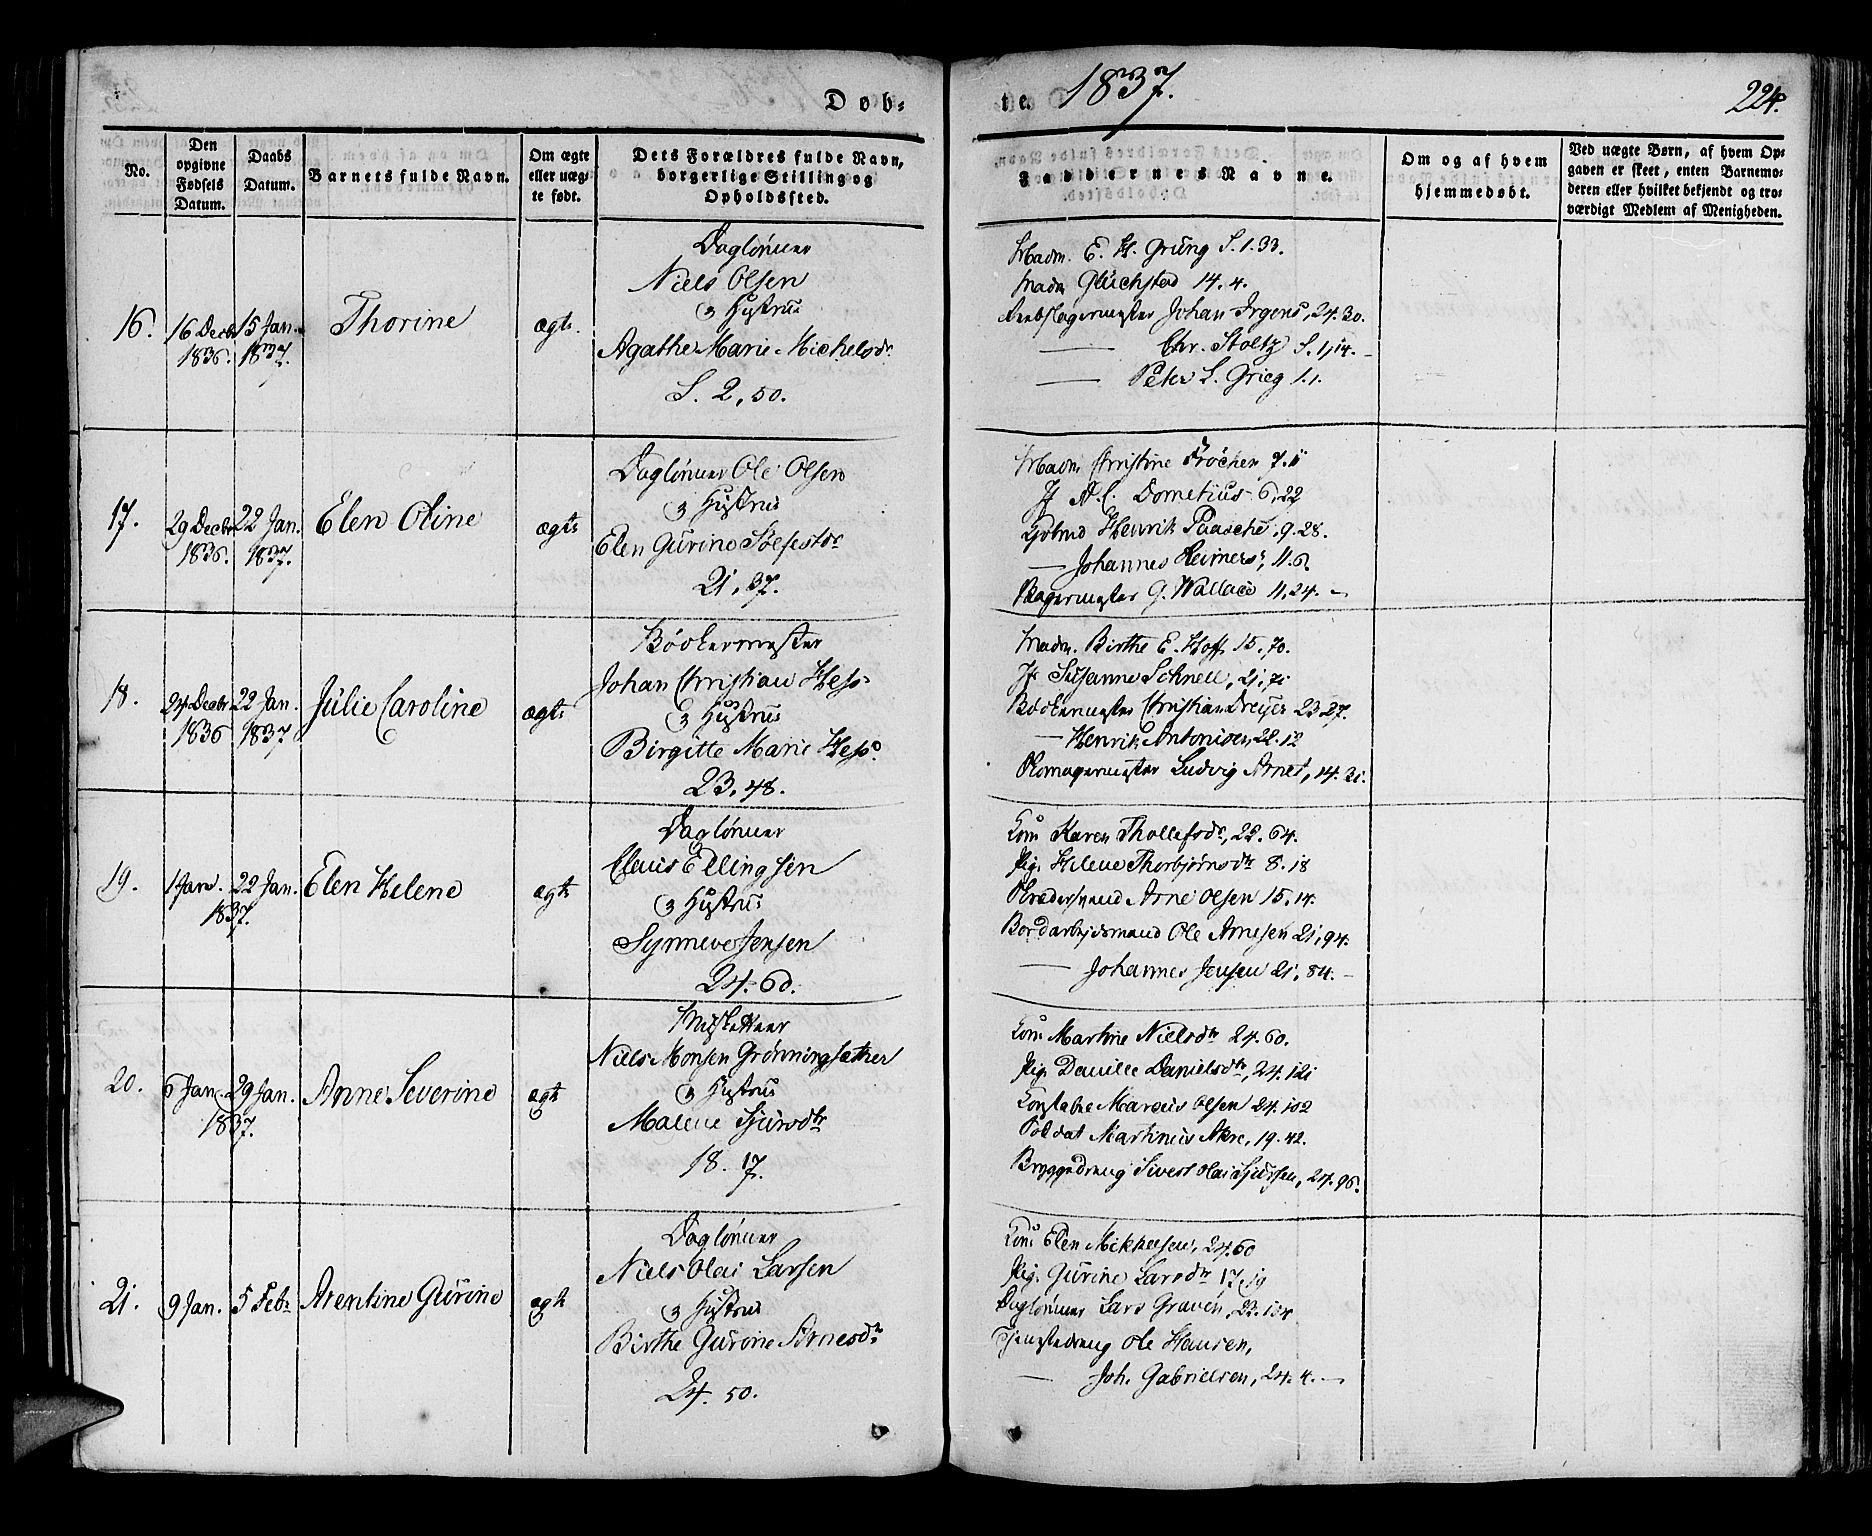 Døb-
te. 1837.
224.
No.
Den opgivne Fødsels Datum.
Daabs Datum.
Barnets fulde Navn.
Om ægte eller uægte født.
Dets Forældres fulde Navn, borgerlige Stilling og Opholdssted.
Faddernes Navne.
Om og af hvem hjemmedøbt.
Ved uægte Børn, af hvem Opgaven er skeet, enten Barnemoderen eller hvilket bekjendt og troværdigt Medlem af Menigheden.
16.
16 Decbr 1836.
15 Jan. 1837.
Thorine
ægte.
Daglønner
Niels Olsen
& Hustrue
Agathe Marie Michelsdr
S. 2, 50.
Madm. E. H. Grüng S. 1. 33.
Madm Glückstad 14. 4.
Rebslagermester Johan Irgens, 24. 30.
— Chr. Stoltz S. 1, 14. –
— Peter L. Grieg 1. 1.
17.
29 Decbr 1836.
22 Jan. 1837.
Elen Oline
ægte
Daglønner Ole Olsen
& Hustrue
Elen Gurine
21, 37.
Madm Christine 7. 11
Jf A. C. Dometius 6, 22
Henrik Paasche, 9. 28.
— Johannes Reimers, 11. 6.
Bagermester G. Wallace 11, 24. –
18.
24 Decbr 1836
22 Jan. 1837
Julie Caroline
ægte
Bødkermester
Johan Christian Hess
& Hustrue
Birgitte Marie Hess.
23, 48.
Madm. Birthe E. Hoff 15, 70.
Jf Susanne Schnell, 21, 71
Bødkermester Christian Dreyer 23. 27.
— Henrik Antonisen, 22. 12
Skomagermester Ludvig Arnet, 14. 31.
19.
1 Jan. 22 Jan.
1837.
Elen Helene
ægte
Daglønner
Claus Ellingsen
& Hustrue
Synneve Jensen
24. 60.
Kone Karen Thollefsdr, 22. 64.
Pig. Helene Thorbjørnsdtr 8. 18
Arne Olsen 15. 14.
Bordarbeidsmand Ole Arnesen 21, 94.
— Johannes Jensen 21, 84. –
20.
6 Jan. 29 Jan.
1837.
Anne Severine
ægte
Musketteer
Niels Monsen Grønningsæther
& Hustrue
Malene Sjursdtr
18. 17.
Kone Martine Nielsdtr 24. 60.
Pig. Danielsdtr, 24. 121
Konstabel Marcus Olsen 24. 102
Soldat Martinus Akre, 19. 42.
Bryggedreng Sivert Olai Sjursen, 24. 96.
21.
9 Jan.
5 Febr
Arentine Gurine
ægte
Daglønner
Niels Olai Larsen
& Hustrue
Birthe Gurine Arnesdr
24. 50.
Kone Elen Mikkelsen, 24. 60
Pig. Gurine Larsdtr 17, 19
Daglønner Lars Graven, 23. 104
Tjenestedreng Ole Hansen,
— Joh. Gabrielsen, 24. 4. –